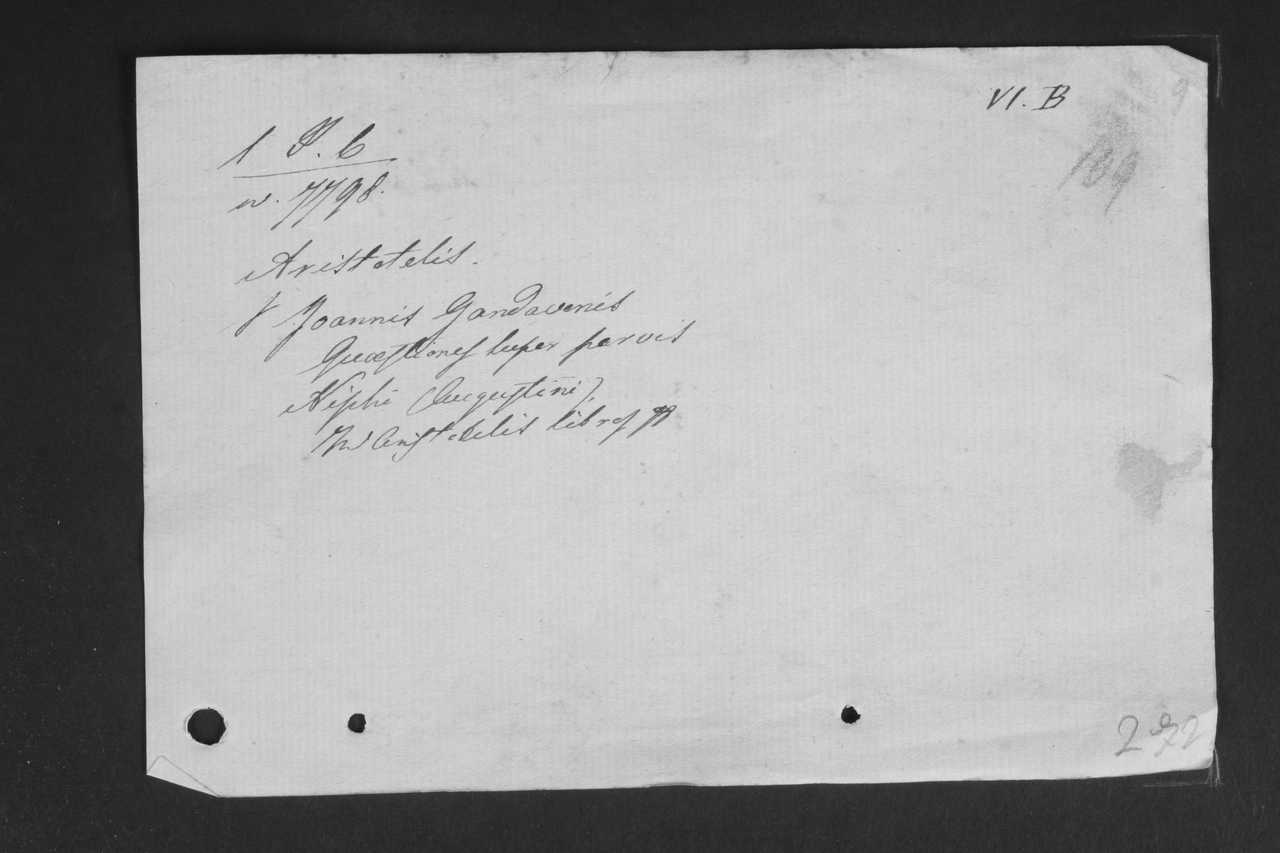 VI. B
109
1 P. 6
n. 7798.
Aristotelis.
Joannis Gandavenis
Quæstiones super parvis
Niphi (Augustini)
In Aristotelis libros
272